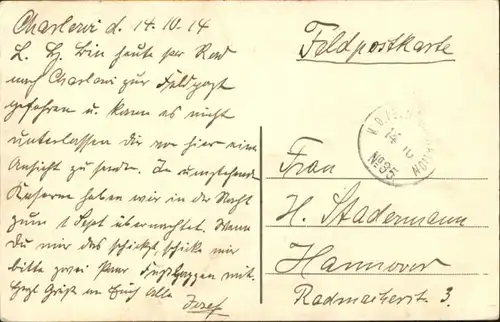 Charleroi d. 14.10.14
L. H. Bin heute per Rad
nach Charleroi zur Feldpost
gefahren u. kann es nicht
unterlassen Dir von hier eine
Ansicht zu senden. In umstehender
Kaserne haben wir in der Nacht
zum 1 Sept übernachtet. Wenn
Du mir das schickst, schicke mir
bitte zwei Paar Fußlappen mit.
Hrzl Grüße an Euch Alle
Josef
Feldpostkarte
14
No 35
Frau
H. Stadermann
Hannover
Radmacherst. 3.